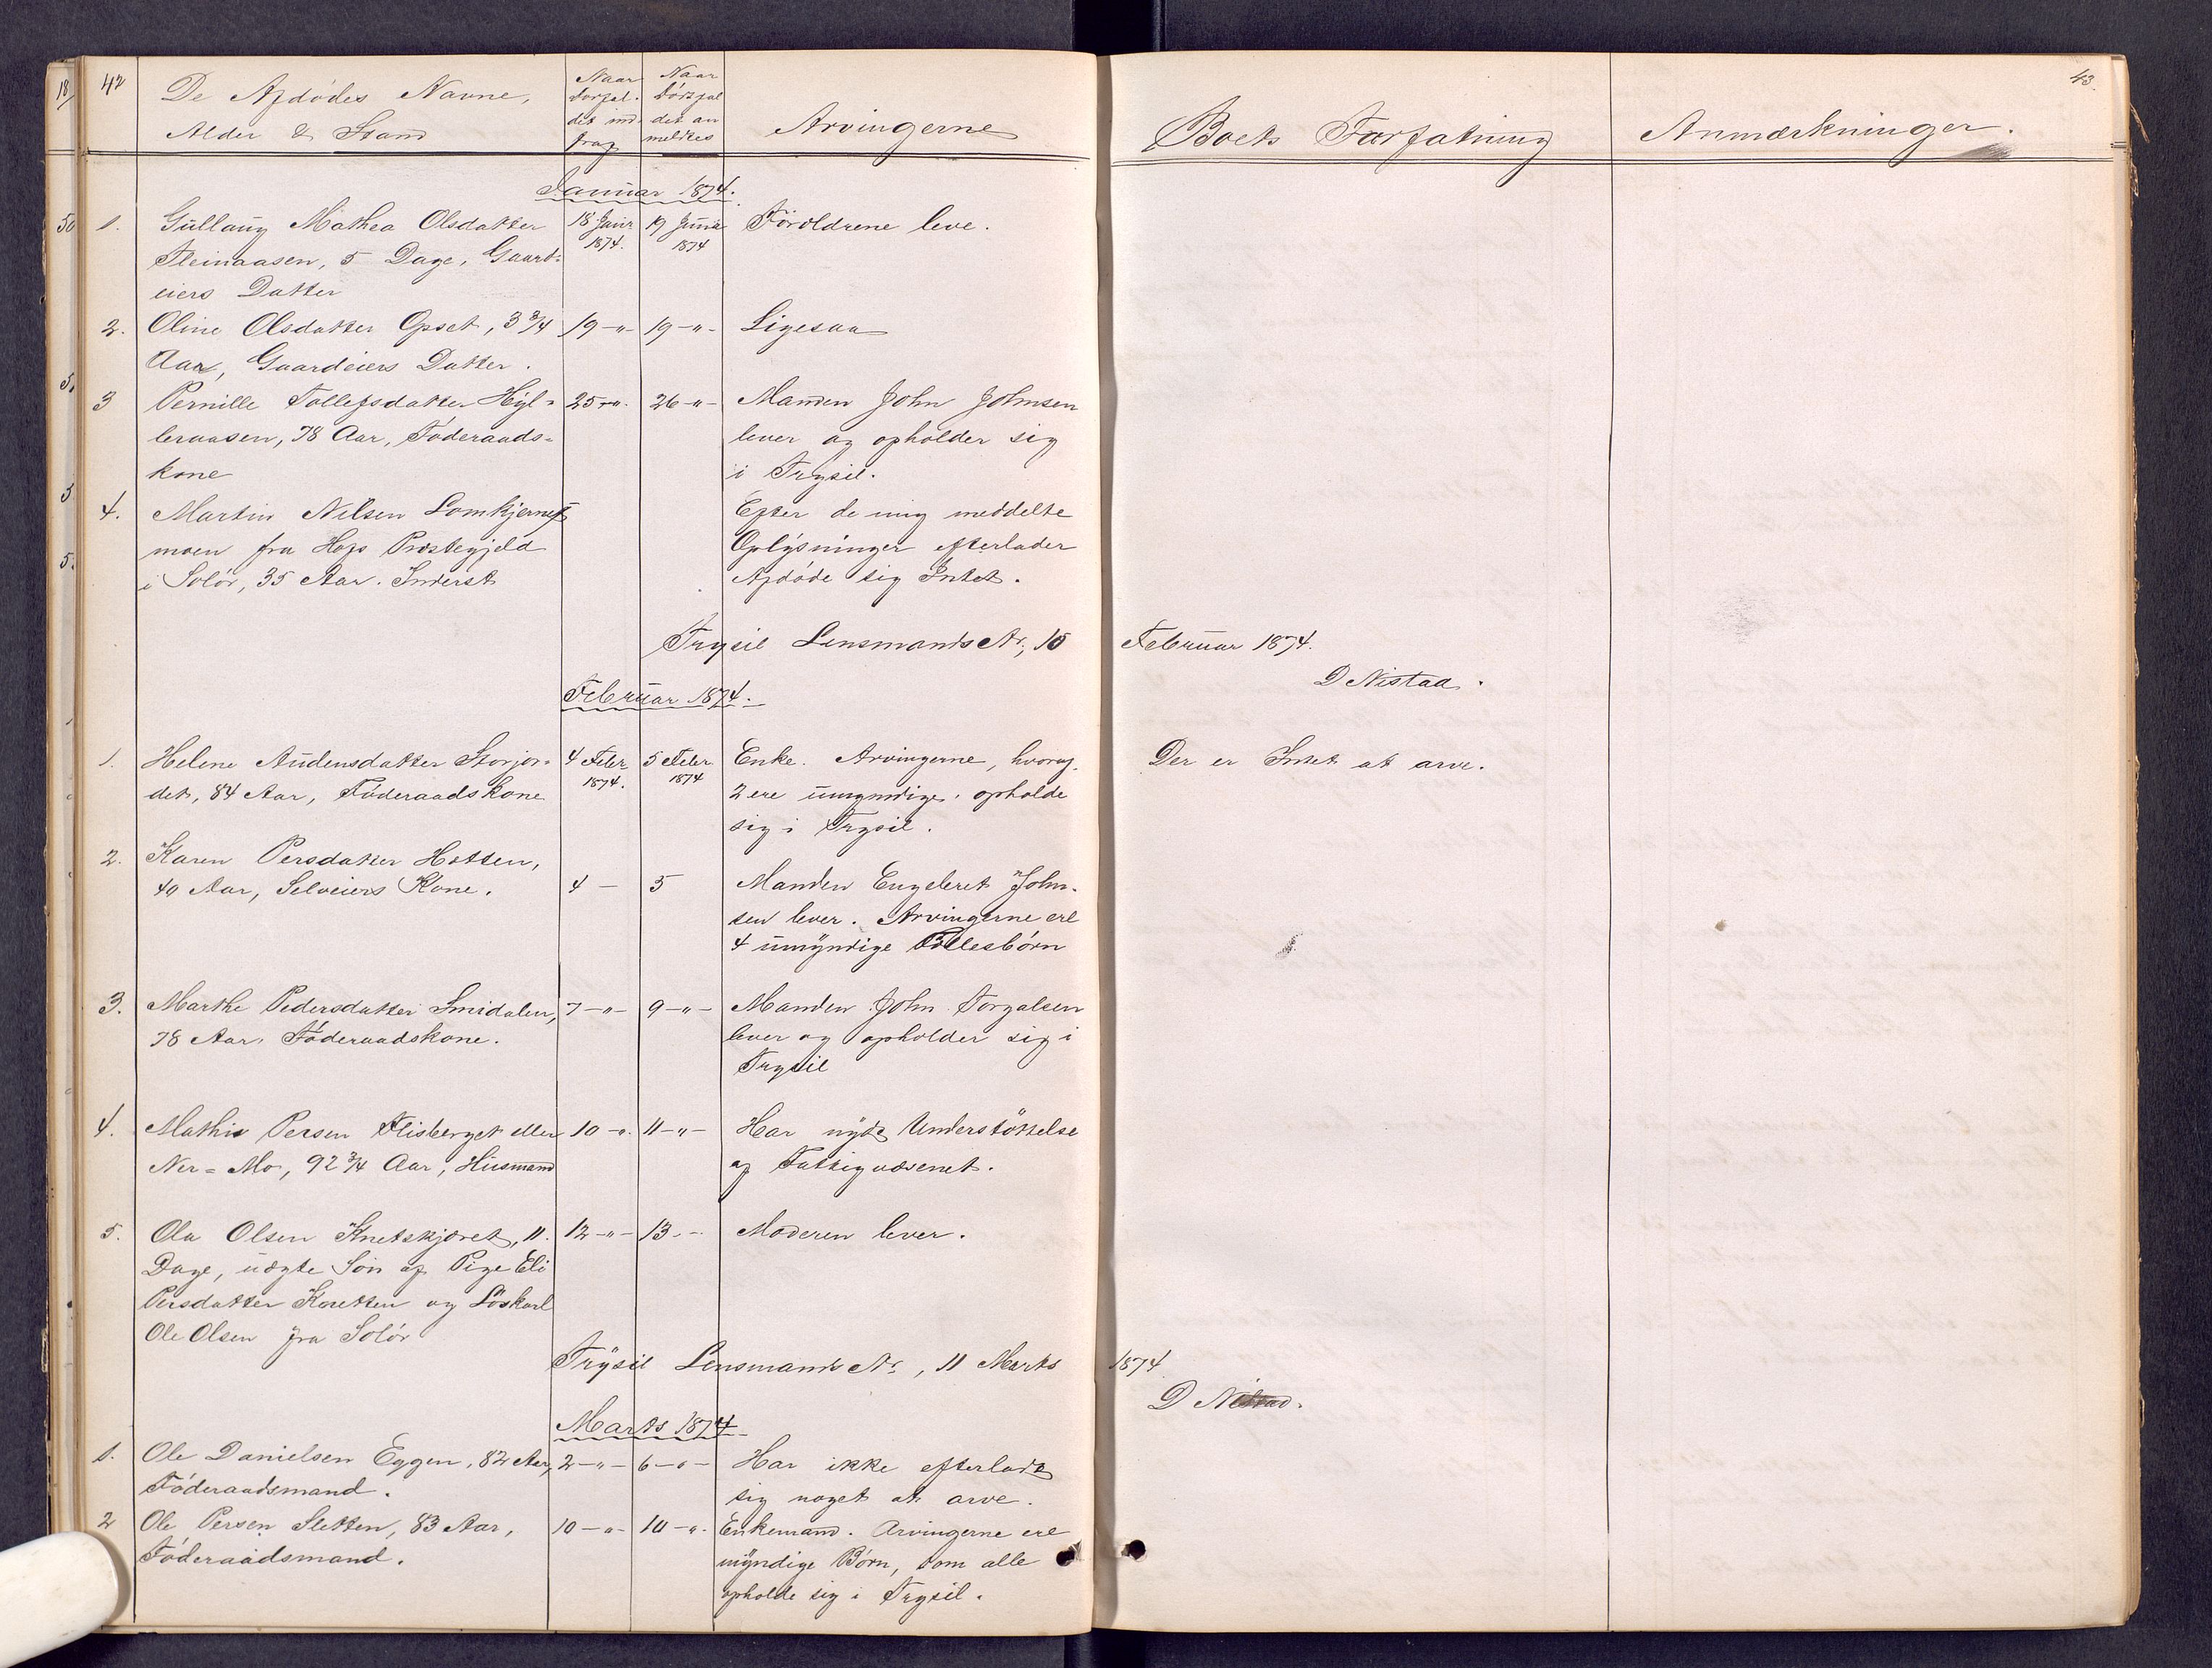 42
De Afdødes Navne,
Alder & Stand
Naar
dødsfal-
det ind-
traf
Naar
dødsfal
det an
meldtes
Arvingerne
Boets Forfatning
Anmærkninger.
43.
Januar 1874.
1. Gullaug Mathea Olsdatter 18 Janr 19 Janr Foröldrene leve.
1874. 1874
Steinaasen, 5 Dage, Gaard-
eiers Datter
2. Oline Olsdatter Opset, 3 3/4 19 -"- 19 -"- Ligesaa
Aar, Gaardeiers Datter.
3 Pernille Tollefsdatter Hyl- 25 -"- 26 -"- Manden John Johnsen
leraasen, 78 Aar, Föderaads- lever og opholder sig
kone i Trysil.
4. Martin Nilsen Lomkjerns- Efter de mig meddelte
moen fra Hofs Præstegjeld Oplysninger efterlader
i Solör, 35 Aar. Inderst Afdöde sig Intet.
Trysil Lensmands Kt., 10 Februar 1874.
D Nistad.
Februar 1874.
1. Helene Audensdatter Storjor- 4 Febr 5 Febr Enke. Arvingerne, hvoraf Der er Intet at arve.
1874. 1874
det, 84 Aar, Föderaadskone 2 ere umyndige, opholde
sig i Trysil.
2. Karen Persdatter Hotten,
40 Aar, Selveiers Kone. 4 - 5 Manden Engebret John-
sen lever. Arvingerne ere
4 umyndige Fællesbörn
3. Marthe Pedersdatter Smidalen, 7 -"- 9 -"- Manden John Torgalsen
78 Aar, Föderaadskone. lever og opholder sig i
Trysil
4. Mathis Persen Flisberget eller 10 -"- 11 -"- Har nydt Understöttelse
Ner-Mo, 92 3/4 Aar, Husmand af Fattigvæsenet.
5. Ola Olsen Knetskjæret, 11 12 -"- 13 -"- Moderen lever.
Dage, uægte Sön af Pige Eli
Persdatter Knetten og Löskarl
Ole Olsen fra Solör
Trysil Lensmands Kt., 11 Marts 1874
D Nistad.
Marts 1874
1. Ole Danielsen Eggen, 82 Aar, 2 -"- 6 -"- Har ikke efterladt
Föderaadsmand. sig noget at arve.
2 Ole Persen Sletten, 83 Aar, 10 -"- 10 -"- Enkemand. Arvingerne ere
Föderaadsmand. myndige Börn, som alle
opholde sig i Trysil.